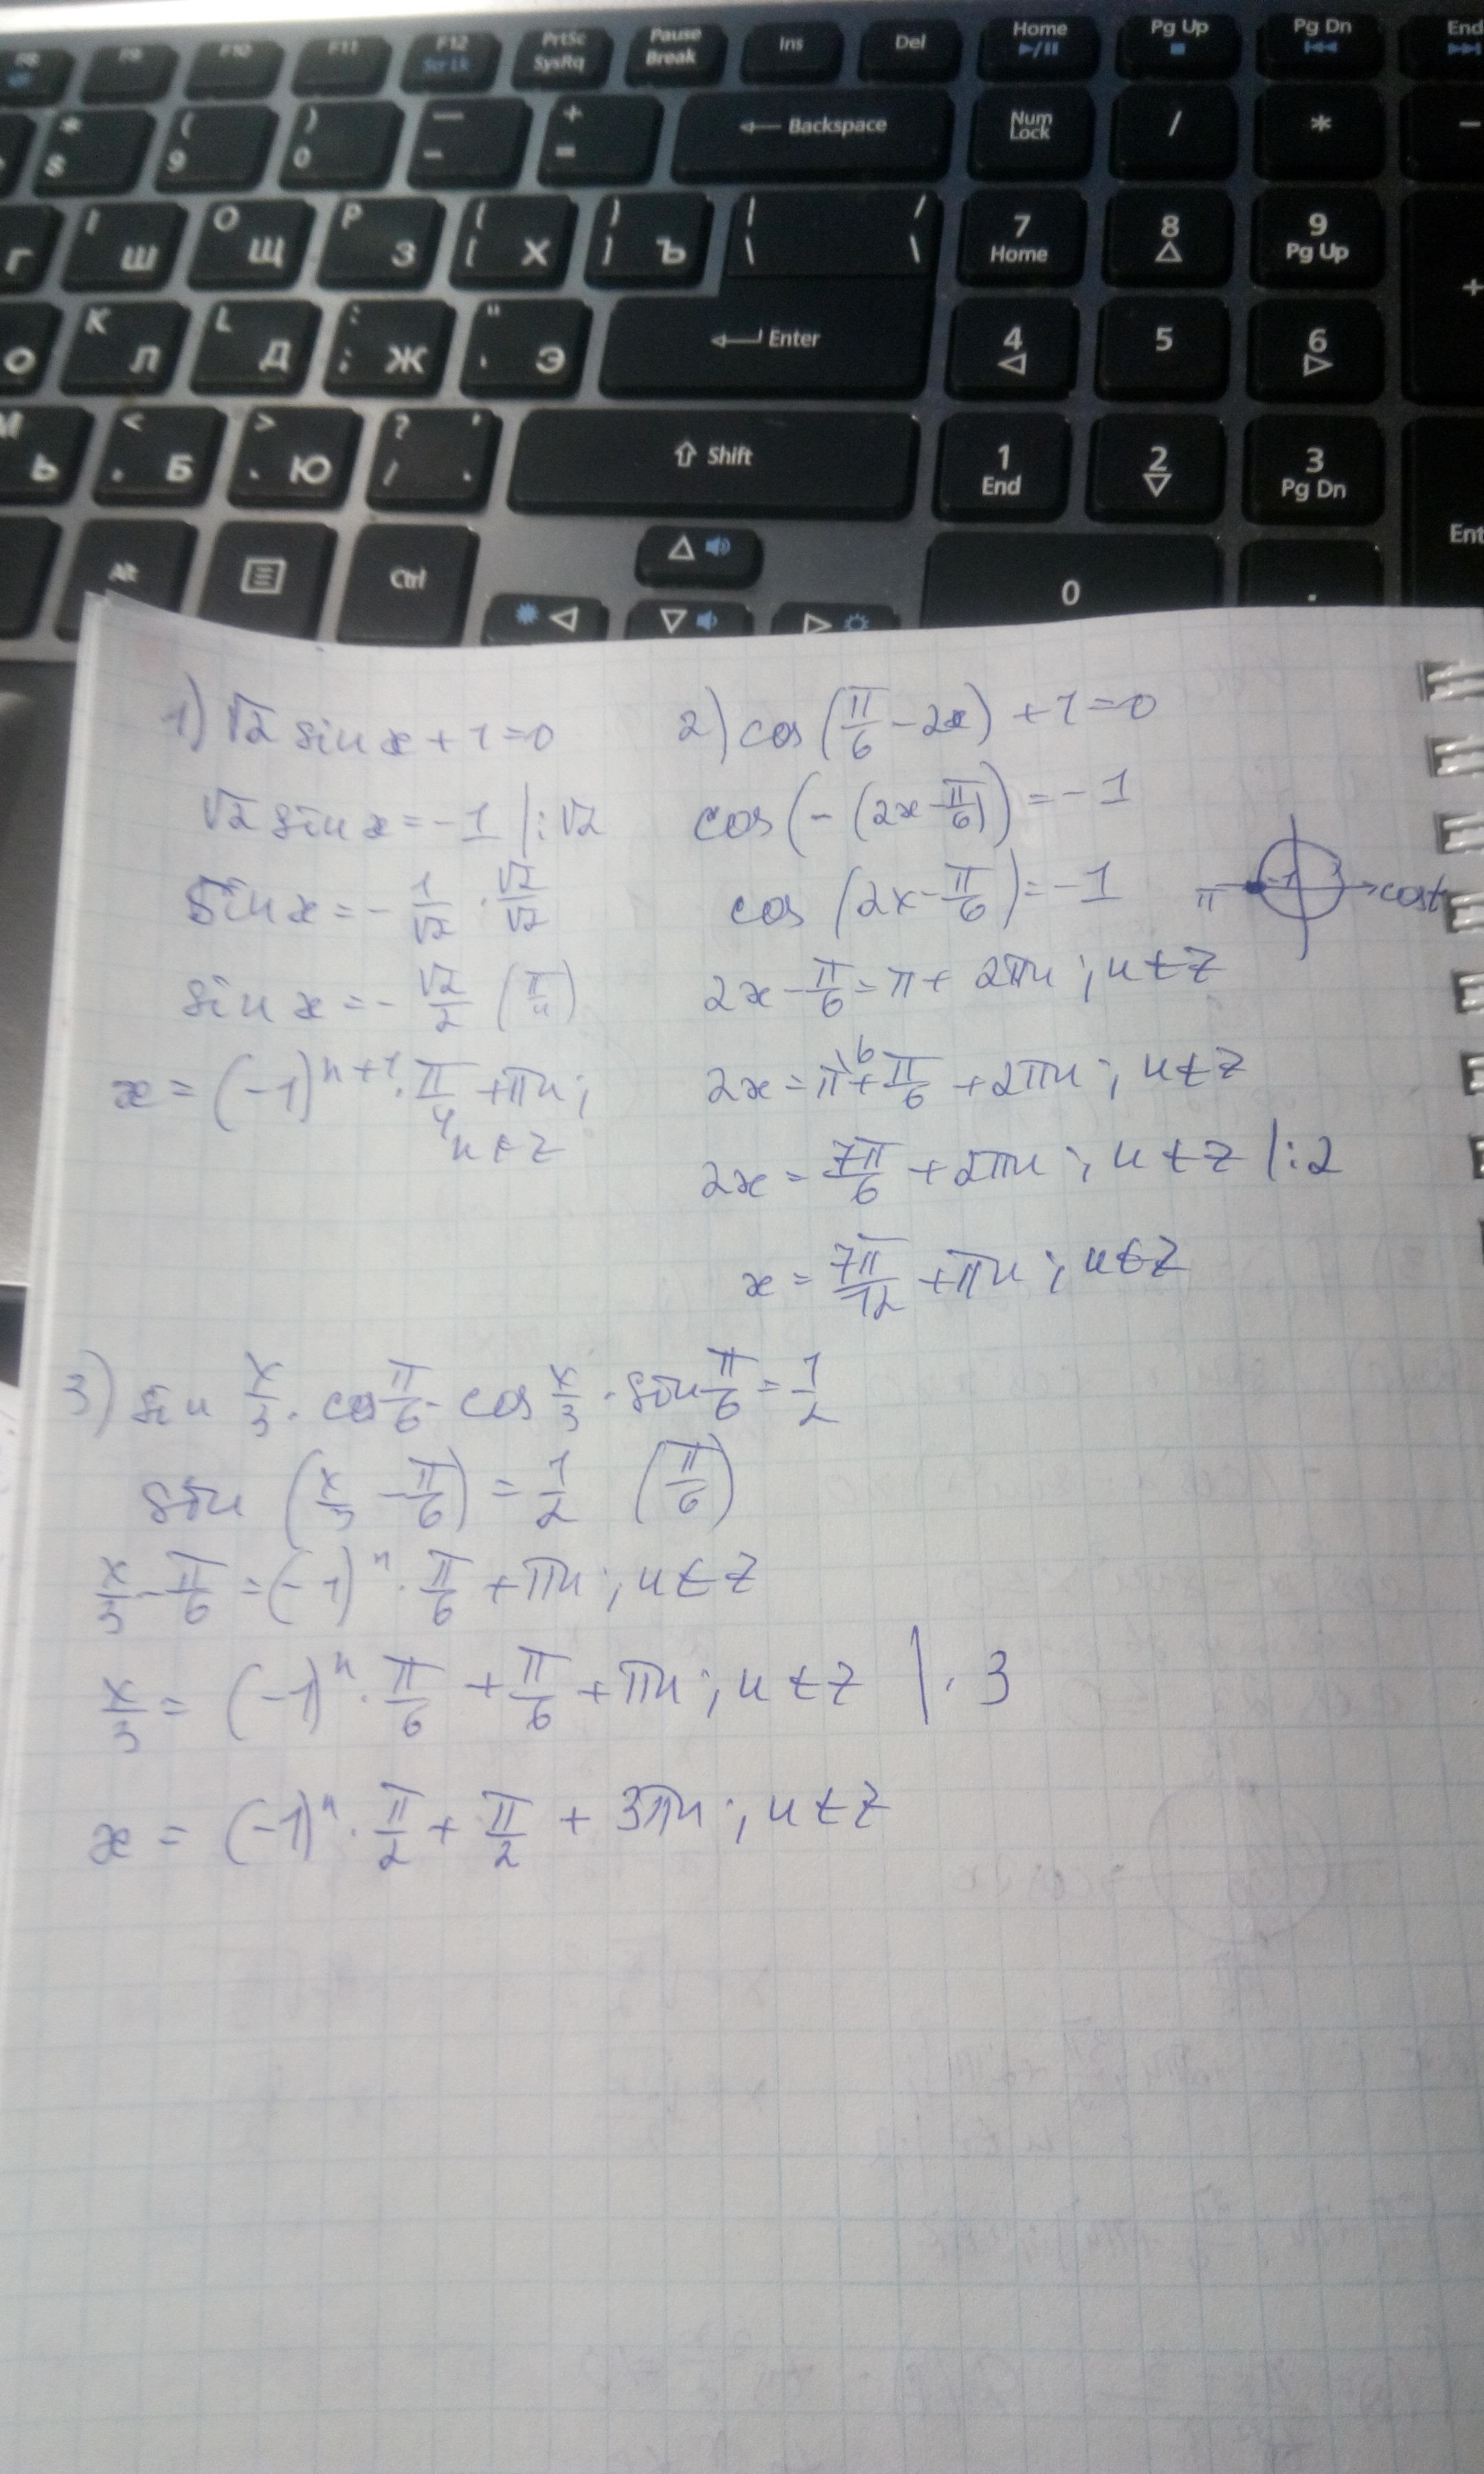 F8 F9 F10 F11 F12 Scr Lk PrtSc SysRq Pause Break Ins Del Home Pg Up Pg Dn End
* 8 ( 9 ) 0 — - + = Backspace Num Lock / * -
Г I Ш O Щ P З { [ Х } ] Ъ | \ / \ 7 Home 8 9 Pg Up +
О K Л L Д : ; Ж " ' Э Enter 4 5 6
M Ь < , Б > . Ю ? / , . Shift 1 End 2 3 Pg Dn
Alt Ctrl 0 . Ent
1) √2 sin x + 1 = 0
√2 sin x = -1 | : √2
sin x = - 1/√2 · √2/√2
sin x = - √2/2 (π/4)
x = (-1)^(n+1) · π/4 + πn;
n ∈ Z
2) cos (π/6 - 2x) + 1 = 0
cos (- (2x - π/6)) = -1
cos (2x - π/6) = -1
π -1 cost
2x - π/6 = π + 2πn ; n ∈ Z
2x = π^\6 + π/6 + 2πn ; n ∈ Z
2x = 7π/6 + 2πn ; n ∈ Z | : 2
x = 7π/12 + πn ; n ∈ Z
3) sin x/3 · cos π/6 - cos x/3 · sin π/6 = 1/2
sin (x/3 - π/6) = 1/2 (π/6)
x/3 - π/6 = (-1)^n · π/6 + πn ; n ∈ Z
x/3 = (-1)^n · π/6 + π/6 + πn ; n ∈ Z | · 3
x = (-1)^n · π/2 + π/2 + 3πn ; n ∈ Z